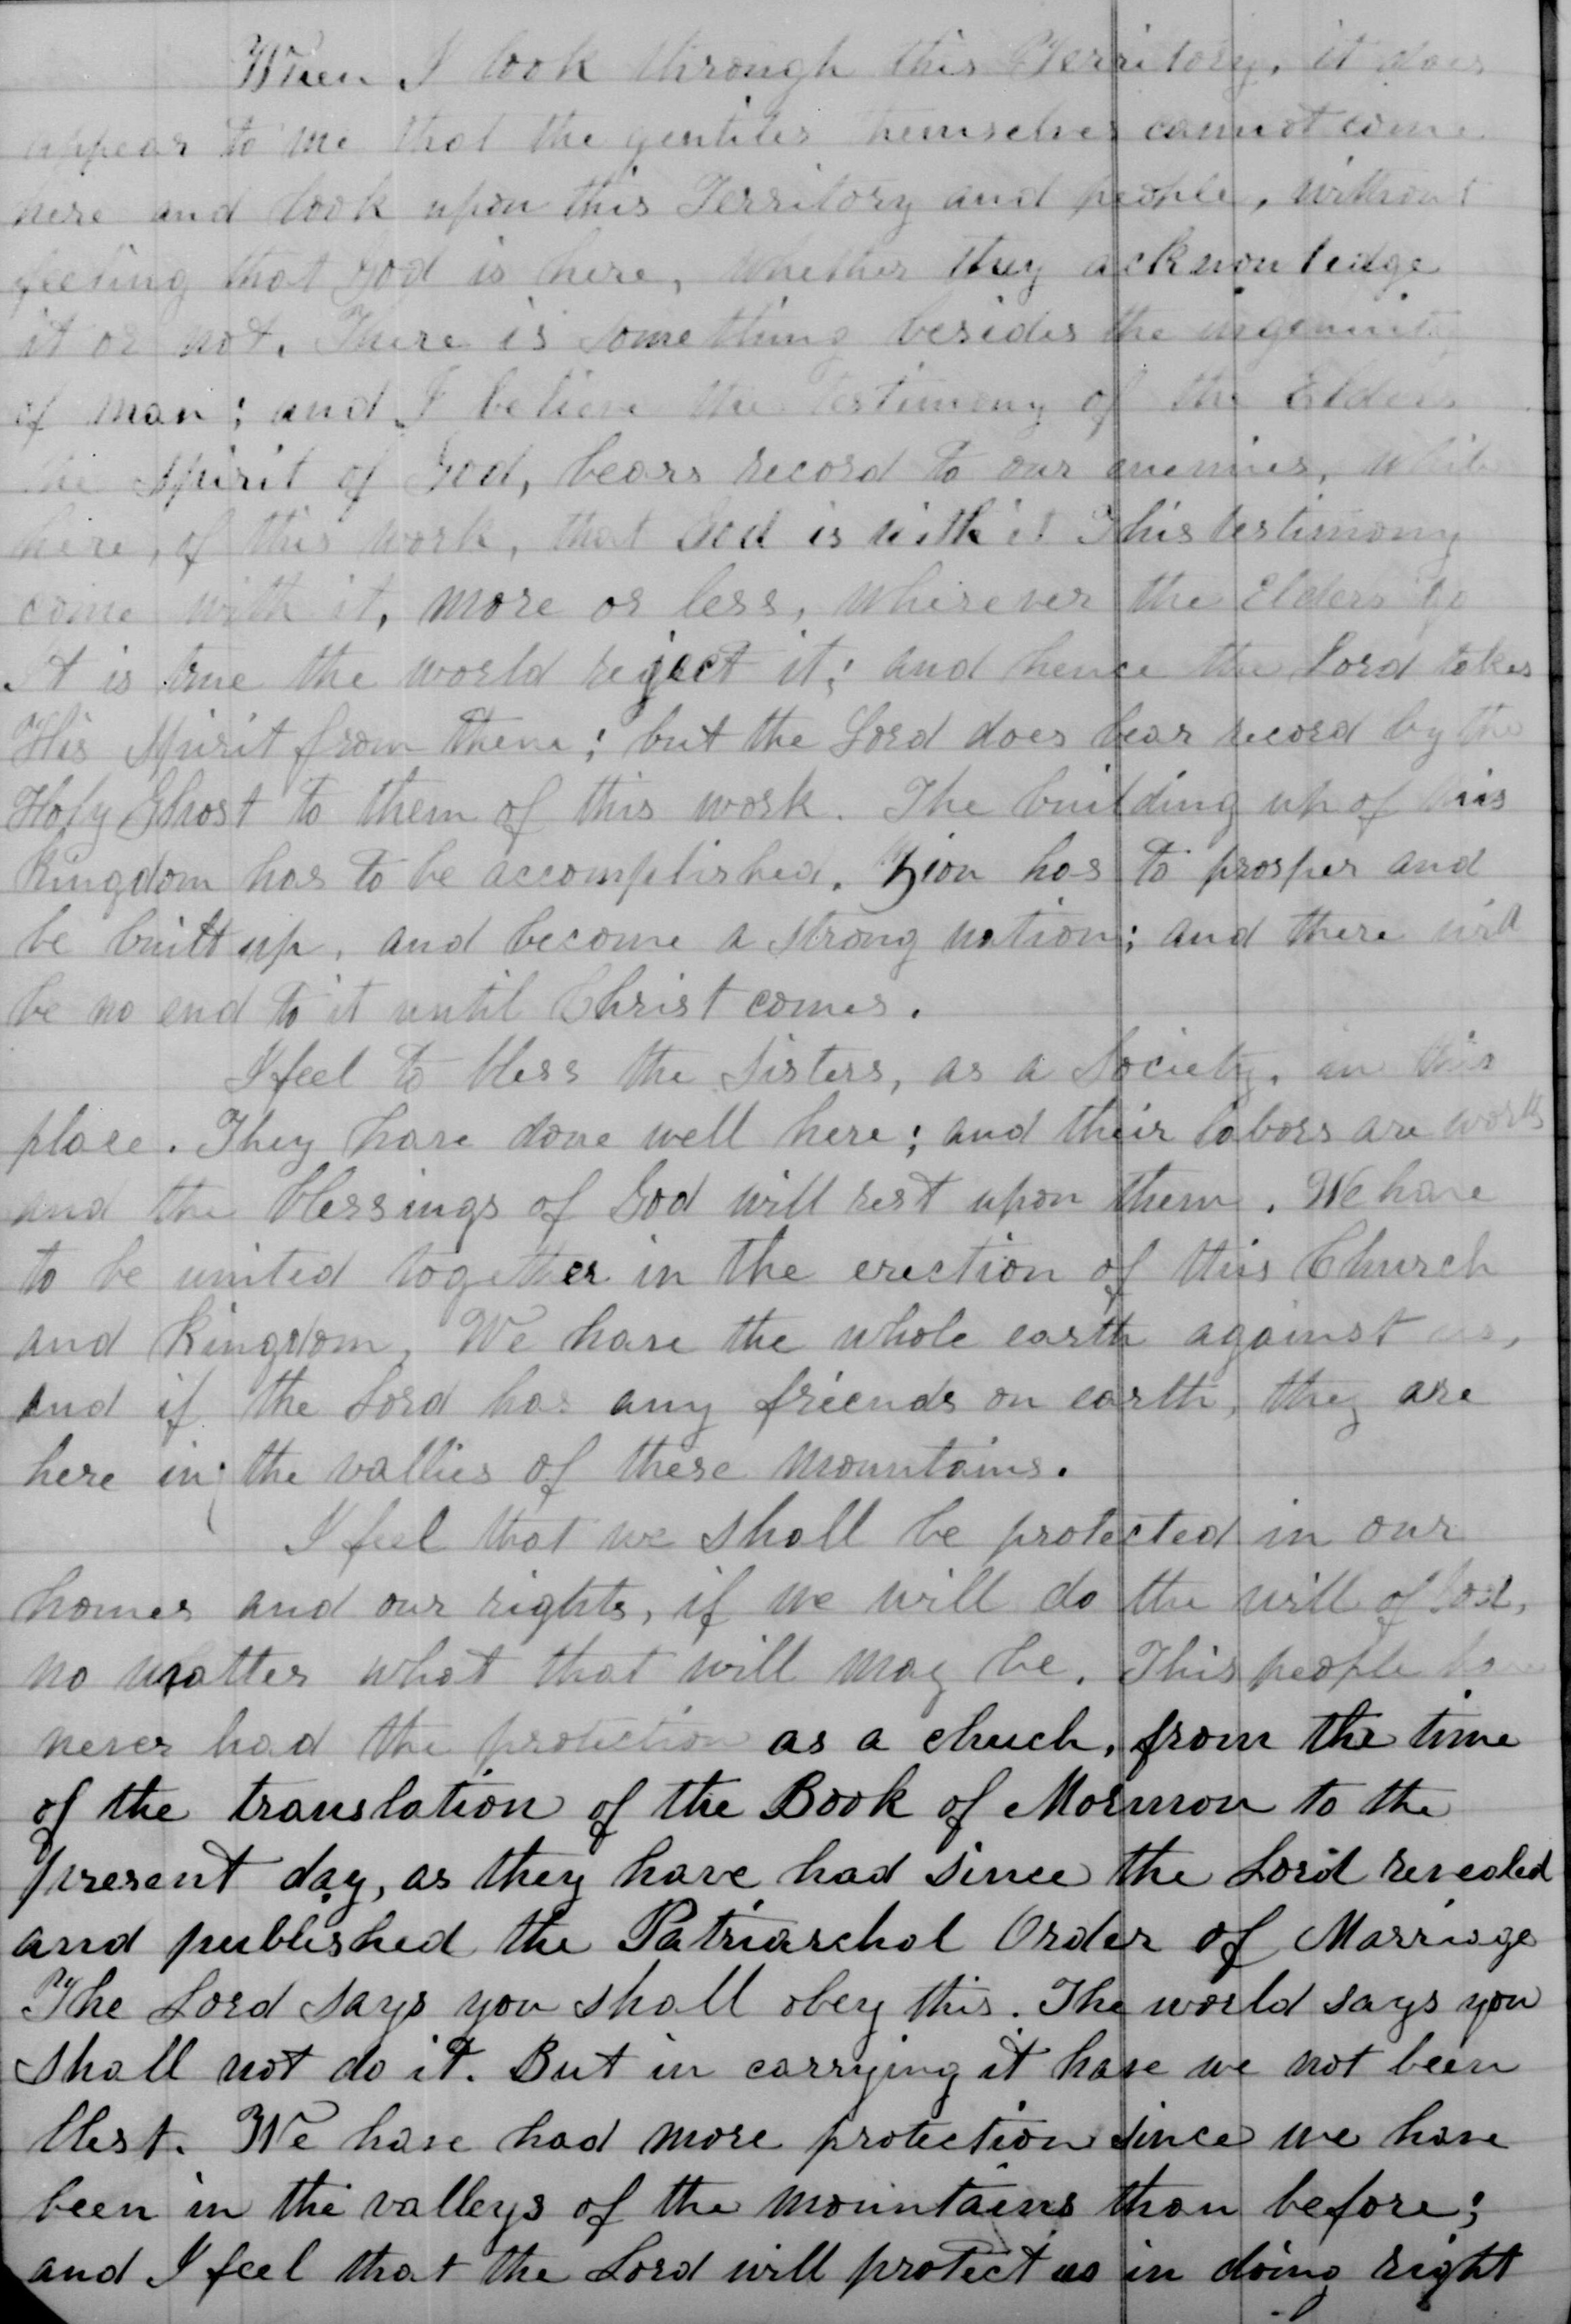 When I look through this Territory, it does
appear to me that the gentiles themselves cannot come
here and look upon this Territory and people, without
feeling that God is here, whether they acknowledge
it or not. There is something besides the ingenuity
of man; and I believe the testimony of the Elders
the spirit of God, bears record to our enemies, while
here, of this work, that God is with it This testimony
come with it, more or less, wherever the Elders go
It is true the world reject it; and hence the Lord takes
His Spirit from them; but the Lord does bear record by the
Holy Ghost to them of this work. The building up of this
Kingdom has to be accomplished. Zion has to prosper and
be built up, and become a strong nation; and there will
be no end to it until Christ comes.
I feel to bless the Sisters, as a Society, in this
place. They have done well here; and their labors are
and the blessings of God will rest upon them. We have
to be united together in the erection of this Church
and Kingdom, We have the whole earth against us,
and if the Lord has any friends on earth, they are
here in the vallies of these mountains.
I feel that we shall be protected in our
homes and our rights, if we will do the will of God,
no matter what that will may be. This people have
never had the protection as a chuch, from the time
of the translation of the Book of Mormon to the
present day, as they have had since the Lord revealed
and published the Patriarchal Order of Marriage
The Lord says you shall obey this. The world says you
shall not do it. But in carrying it have we not been
blest. We have had more protection since we have
been in the valleys of the mountains than before;
and I feel that the Lord will protect us in doing right